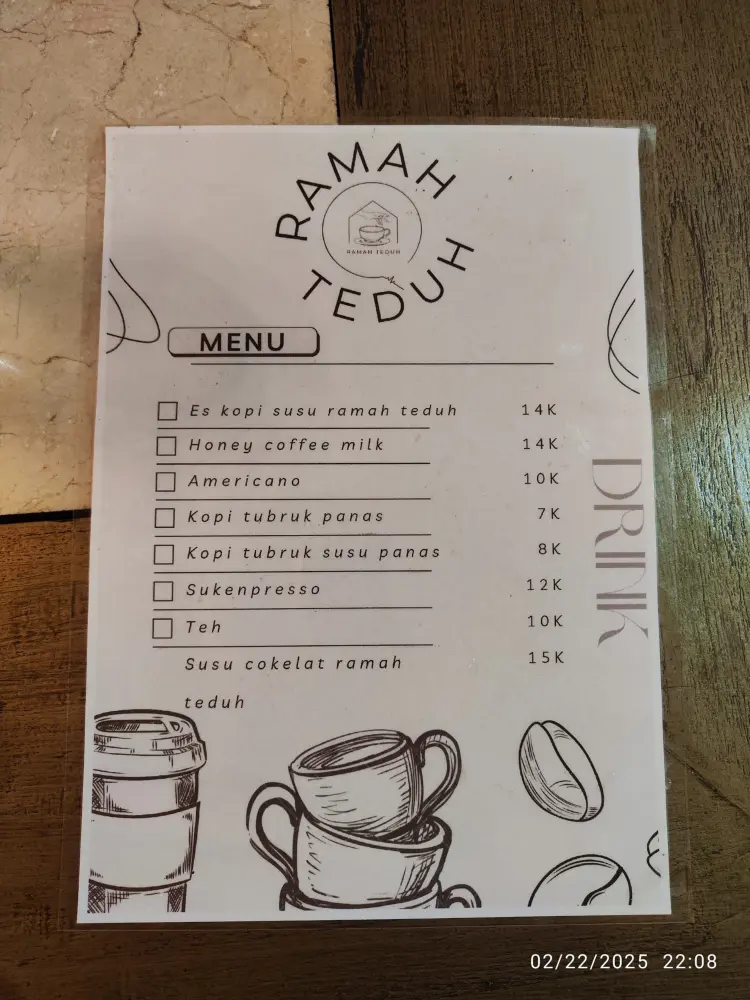 RAMAH
TEDUH
RAMAH TEDUH
MENU
Es kopi susu ramah teduh 14K
Honey coffee milk 14K
Americano 10K
Kopi tubruk panas 7K
Kopi tubruk susu panas 8K
Sukenpresso 12K
Teh 10K
Susu cokelat ramah 15K
teduh
DRINK
02/22/2025 22:08